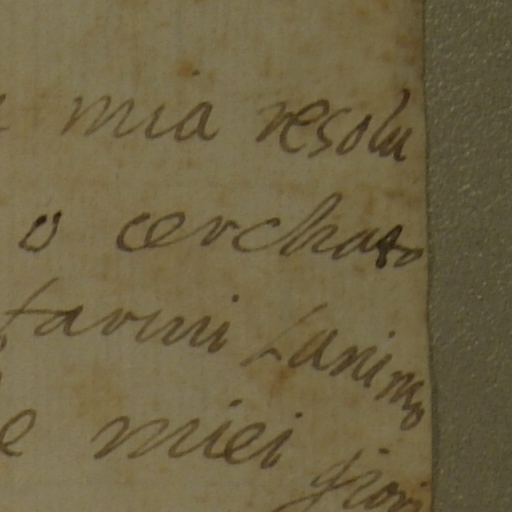 mia resolu
o cerchato
farmi Lanimo
e miei giorni